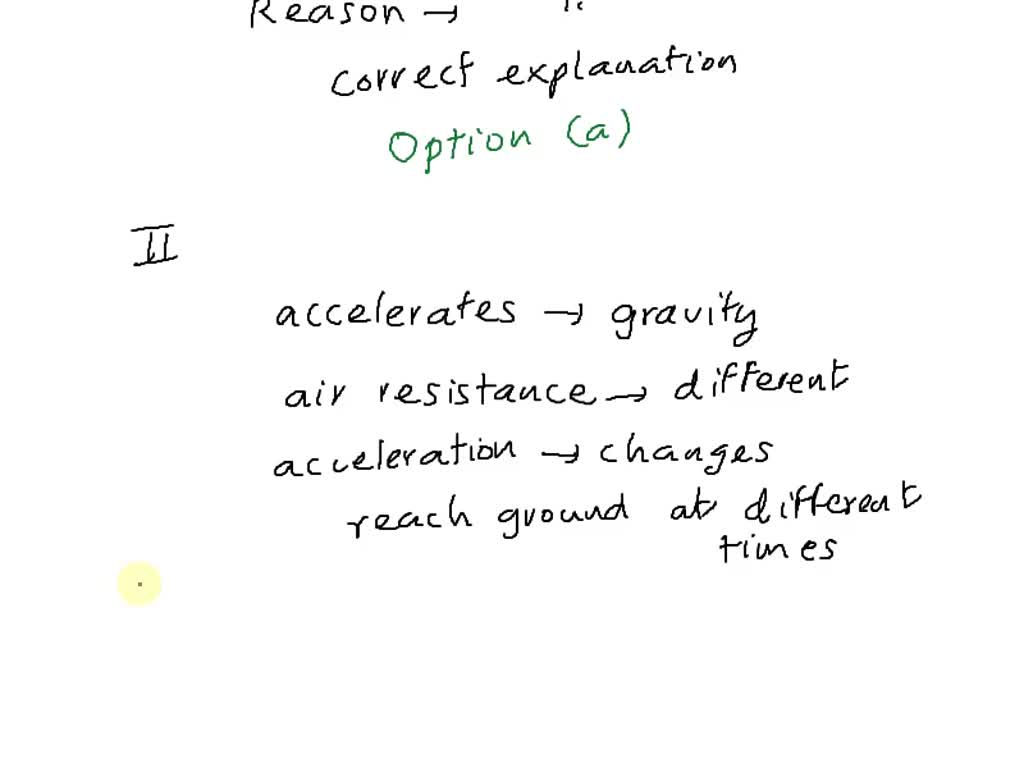 Reason →
correct explanation
Option (a)
II
accelerates → gravity
air resistance → different
acceleration → changes
reach ground at different
times